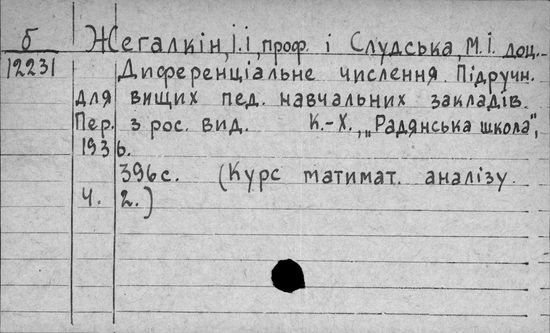 б Жегалкін, І.І, проф. і Слудська, М.І. доц.-
12231 Диференціальне числення. Підручн.
для вищих пед. навчальних закладів.
Пер. з рос. вид. К.-Х., „Радянська школа",
1936.
396с. (Курс матимат. аналізу.
Ч. 2.)